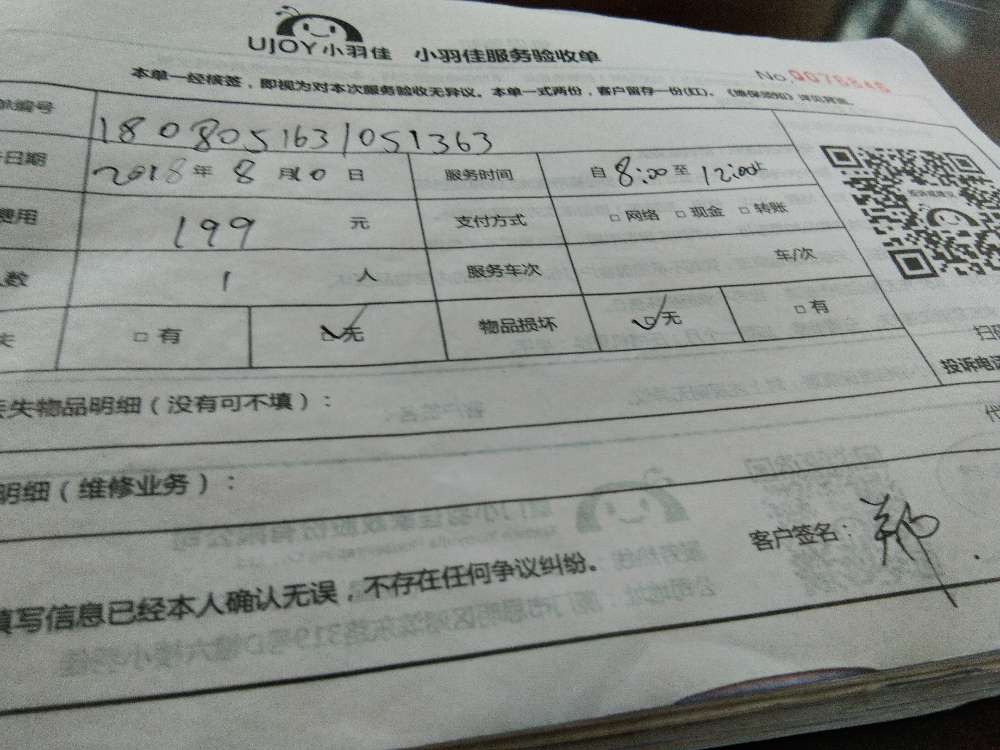 UJOY小羽佳 小羽佳服务验收单
No.0076846
本单一经核签，即视为对本次服务验收无异议。本单一式两份，客户留存一份(红)。《维保须知》详见背面。
单编号 1808051631051363
日期 2018年8月10日 服务时间 自8:00至12:00止
费用 199 元 支付方式 □网络 □现金 □转账
人数 1 人 服务车次 车/次
失 □有 ☑无 物品损坏 ☑无 □有
投诉电话
丢失物品明细（没有可不填）：
明细（维修业务）：
客户签名：郑
填写信息已经本人确认无误，不存在任何争议纠纷。